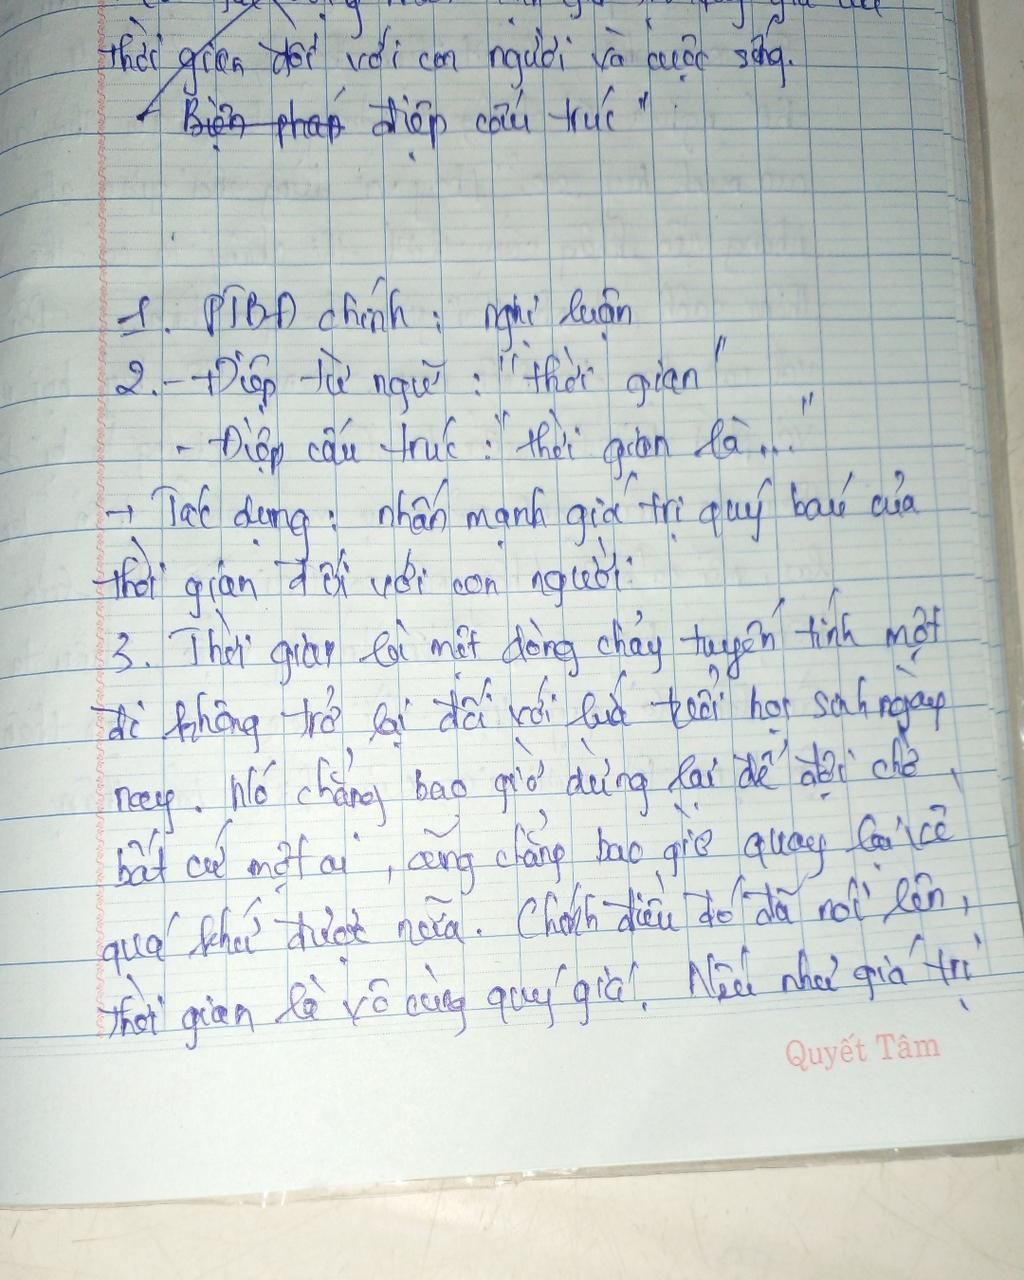 thời gian đối với con người và cuộc sống.
Biện pháp điệp cấu trúc"
1. PTBĐ chính: nghị luận
2. - Điệp từ ngữ: "thời gian"
- Điệp cấu trúc: "thời gian là..."
→ Tác dụng: nhấn mạnh giá trị quý báu của
thời gian đối với con người.
3. Thời gian là một dòng chảy tuyến tính một
đi không trở lại đối với lứa tuổi học sinh ngày
nay. Nó chẳng bao giờ dừng lại để đợi chờ
bất cứ một ai, cũng chẳng bao giờ quay lại về
quá khứ được nữa. Chính điều đó đã nói lên,
thời gian là vô cùng quý giá. Nếu như giá trị
Quyết Tâm